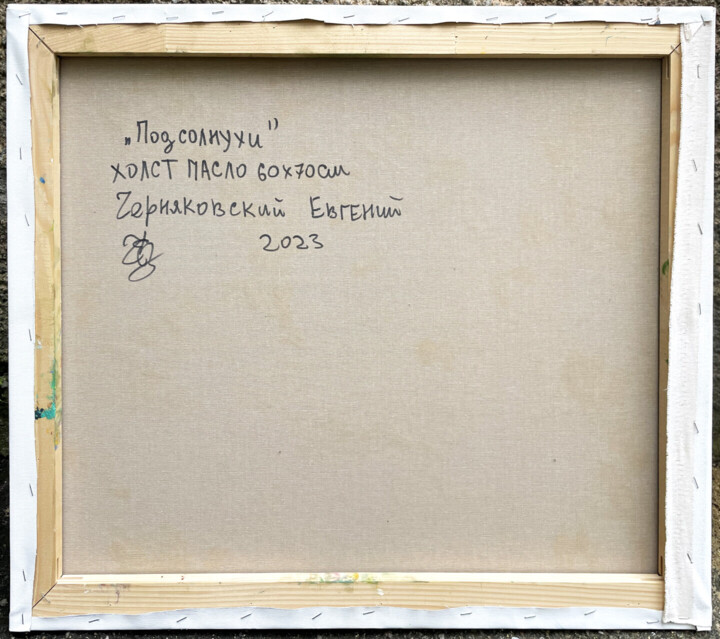 „Подсолнухи"
ХОЛСТ МАСЛО 60х70см
Черняковский Евгений
2023